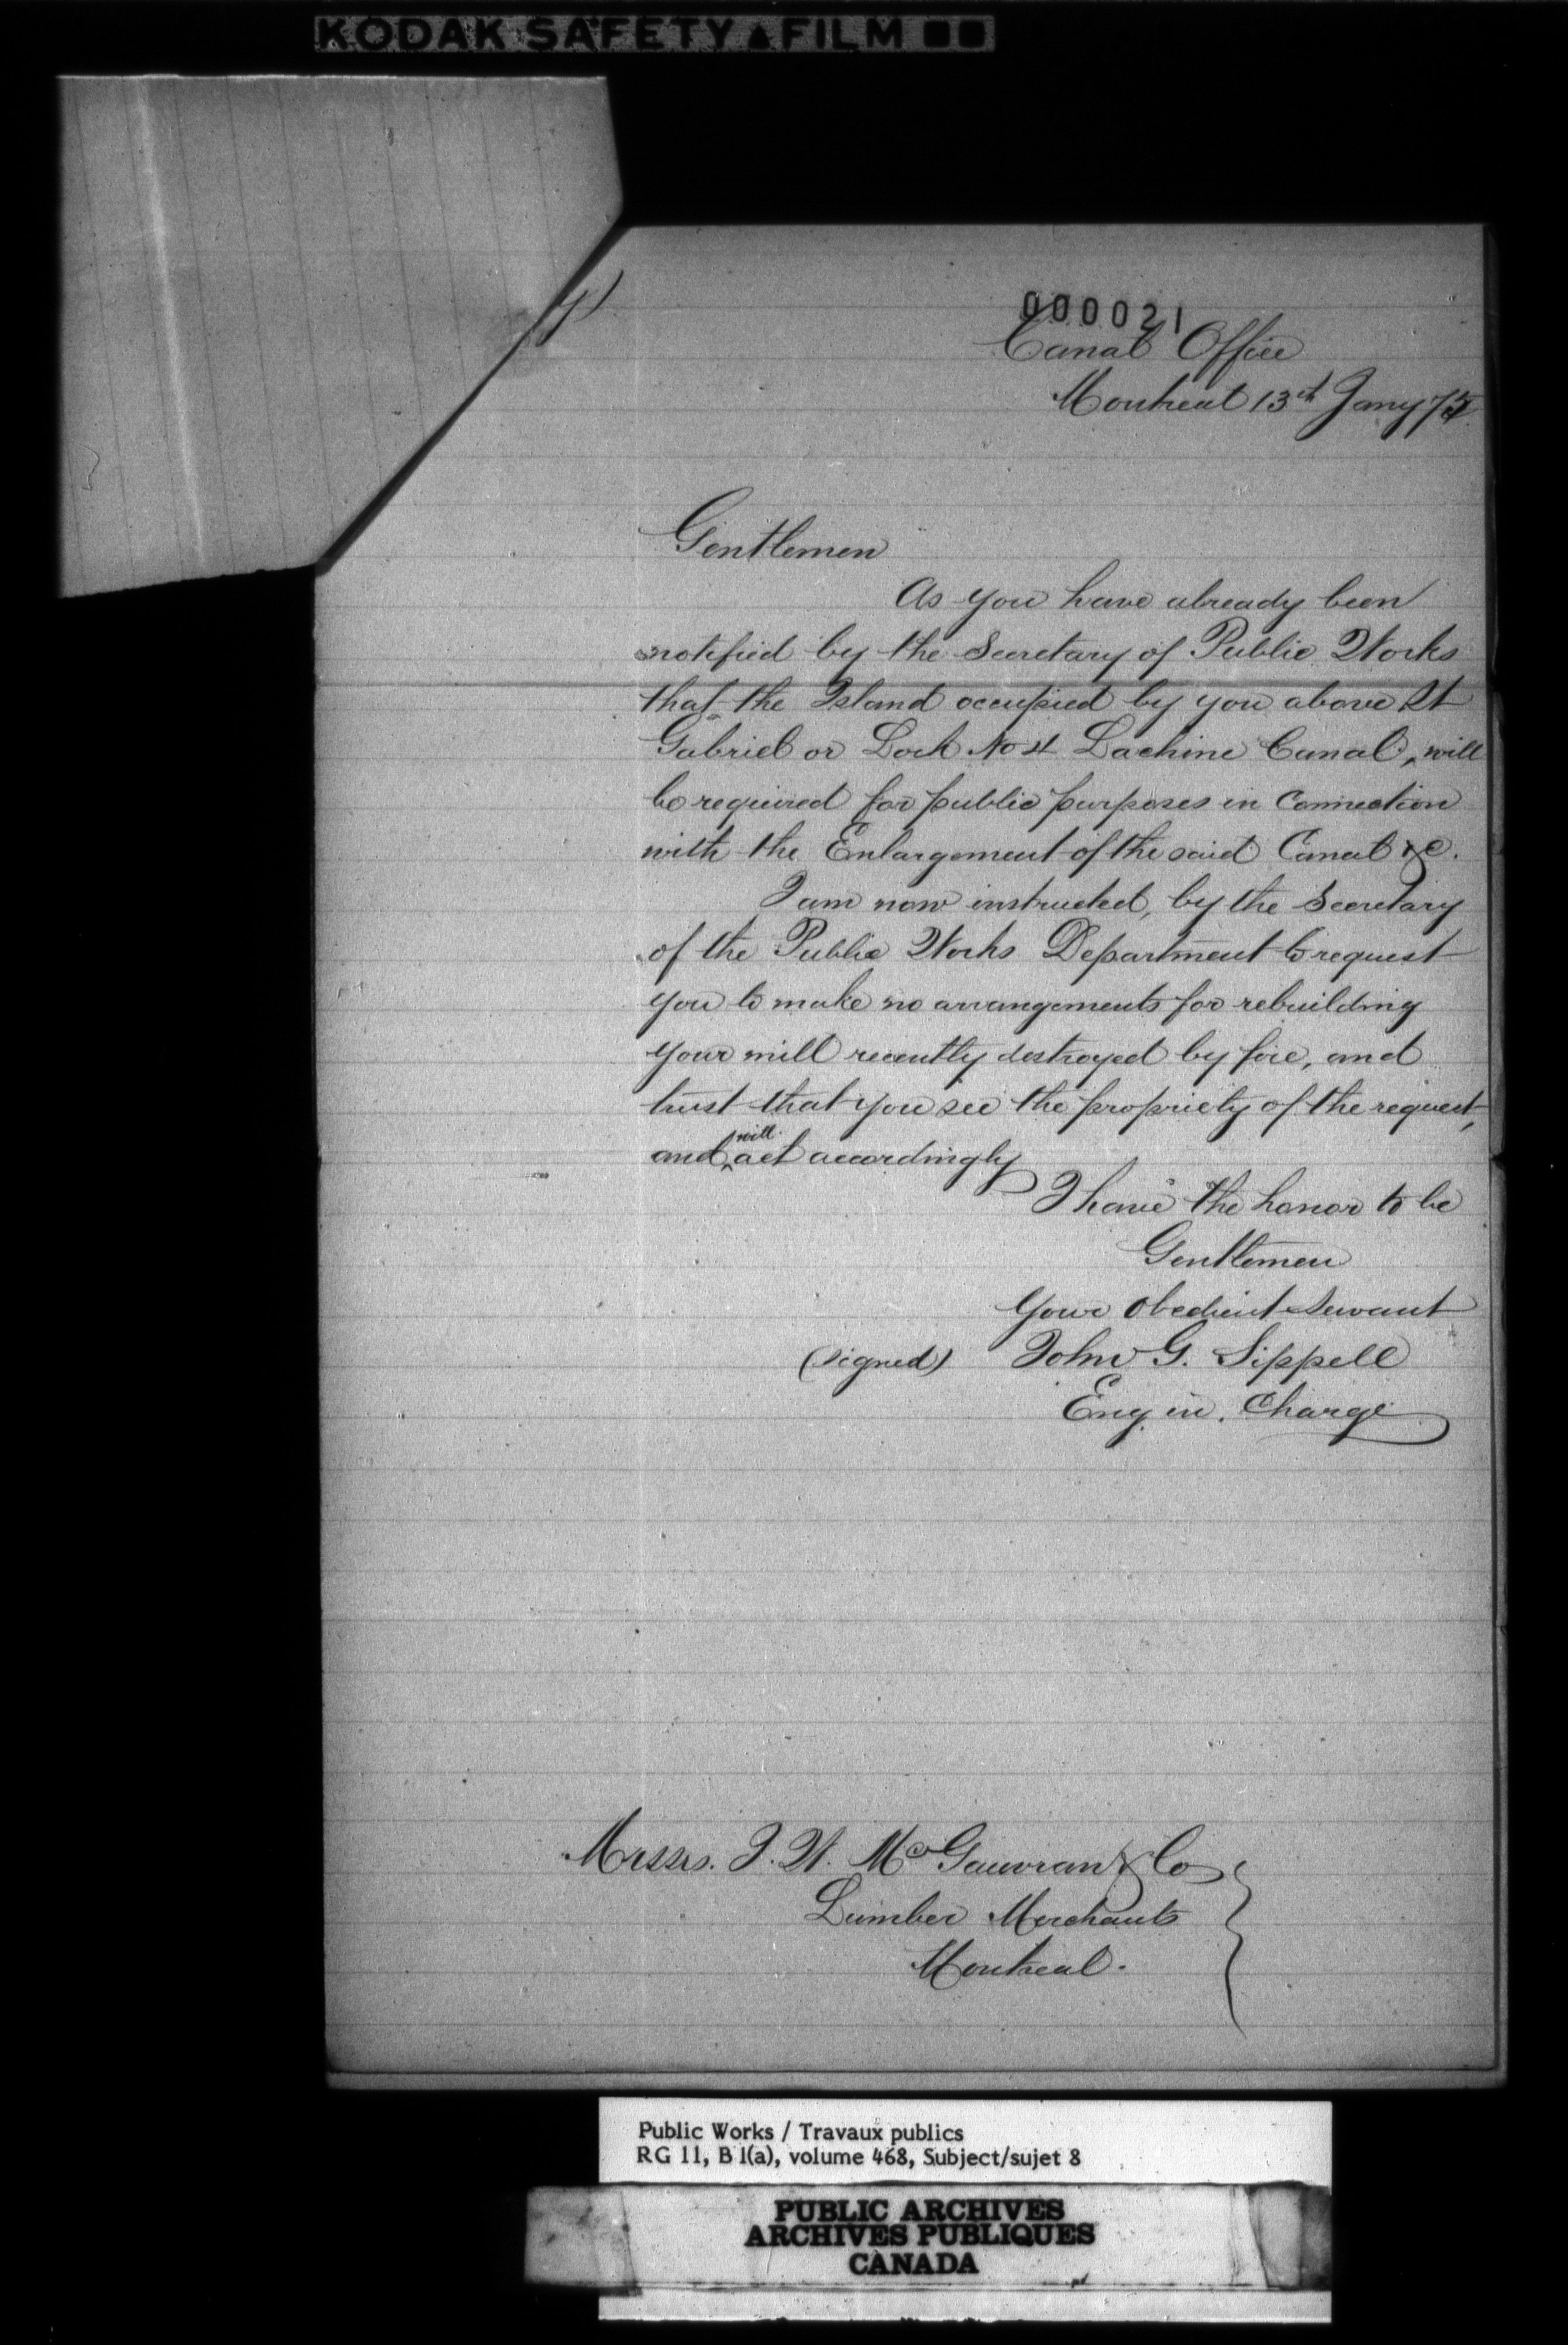 KODAK SAFETY FILM
000021
Canal Office
Montreal 13th Jany 75
Gentlemen
As you have already been
notified by the Secretary of Public Works
that the Island occupied by you above St
Gabriel or Lock No 4 Lachine Canal, will
be required for public purposes in Connection
with the Enlargement of the said Canal &c.
I am now instructed, by the Secretary
of the Public Works Department to request
you to make no arrangements for rebuilding
your mill recently destroyed by fire, and
trust that you see the propriety of the request,
and will act accordingly
I have the honor to be
Gentlemen
Your obedient Servant
(signed) John G. Sippell
Eng. in. Charge
Messrs. J. W. McGauvran & Co
Lumber Merchants
Montreal.
Public Works / Travaux publics
RG 11, B 1(a), volume 468, Subject/sujet 8
PUBLIC ARCHIVES
ARCHIVES PUBLIQUES
CANADA